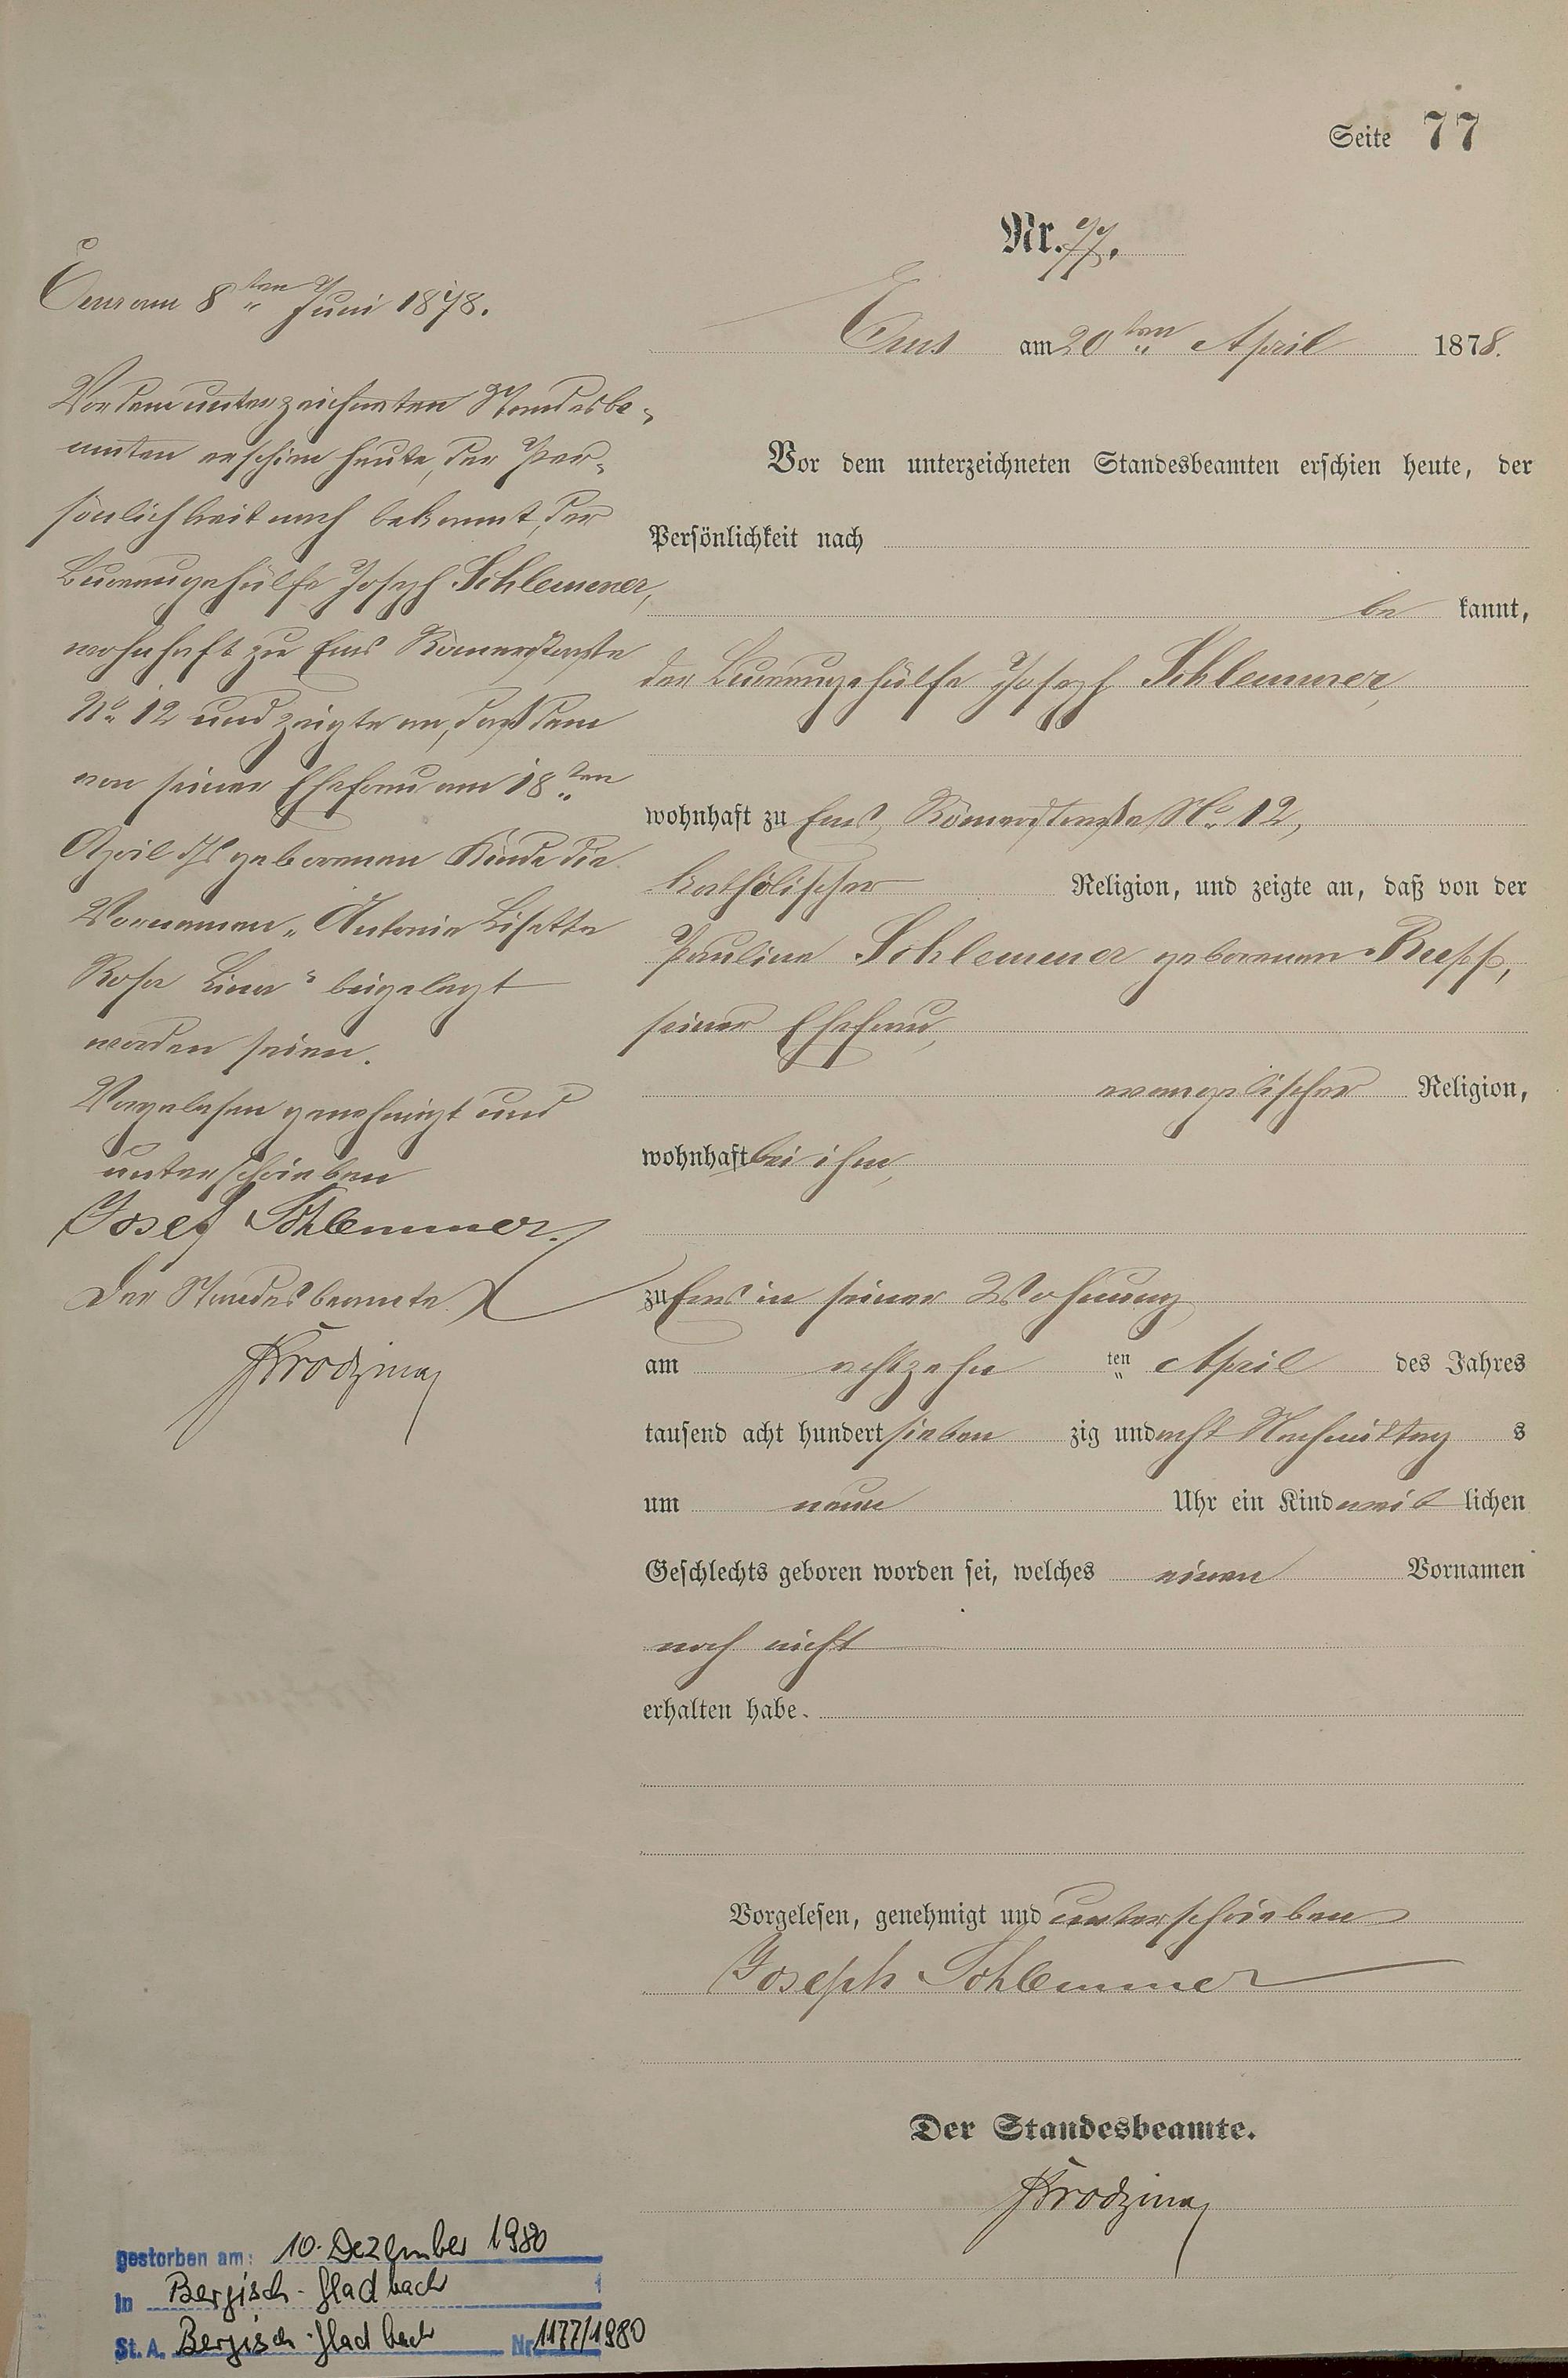 Seite 77
Nr. 77.
Ems am 20ten April 1878.
Vor dem unterzeichneten Standesbeamten erschien heute, der
Persönlichkeit nach
be kannt,
der Bureaugehülfe Joseph Schlemmer,
wohnhaft zu Ems, Römerstraße No. 12,
katholischer Religion, und zeigte an, daß von der
Pauline Schlemmer geborenen
seiner Ehefrau,
evangelischer Religion,
wohnhaft bei ihm,
zu Ems in seiner Wohnung
am achtzehn ten April des Jahres
tausend acht hundert sieben zig und acht Nachmittag s
um neun Uhr ein Kind weib lichen
Geschlechts geboren worden sei, welches einen Vornamen
noch nicht
erhalten habe.
Vorgelesen, genehmigt und unterschrieben
Joseph Schlemmer
Der Standesbeamte.
Ems am 8ten Juni 1878.
Vor dem unterzeichneten Standesbe-
amten erschien heute, der Per-
sönlichkeit nach bekannt, der
Bureaugehülfe Joseph Schlemmer,
wohnhaft zu Ems Römerstraße
No. 12 und zeigte an, daß dem
von seiner Ehefrau am 18ten
April geborenen Kinde die
Vornamen „Antonie Lisette
Rosa Lina" beigelegt
worden seien.
Vorgelesen genehmigt und
unterschrieben
Josef Schlemmer.
Der Standesbeamte
gestorben am: 10. Dezember 1980
in Bergisch-Gladbach
St. A. Bergisch-Gladbach Nr. 1177/1980